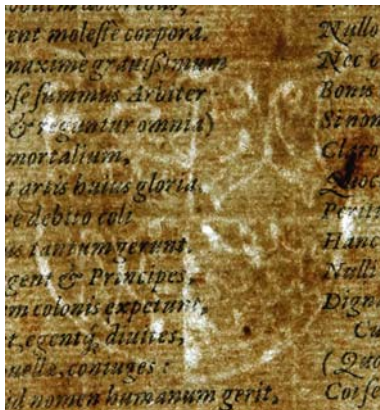 ent molesse corpora.
maximè grauissimum
ose summus Arbiter
& reguntur omnia)
mortalium,
t artis huius gloria.
re debito coli
us tantum uerunt,
gent & Principes,
m colonis expetunt,
t, egentq́; diuites,
uellæ, coniuges:
id nomen humanum gerit,
Nullo
Nec o
Bonis
Si non
Claro
Quoc
Periti
Hanc
Nulli
Dign
Cu
(Quo
Cor se